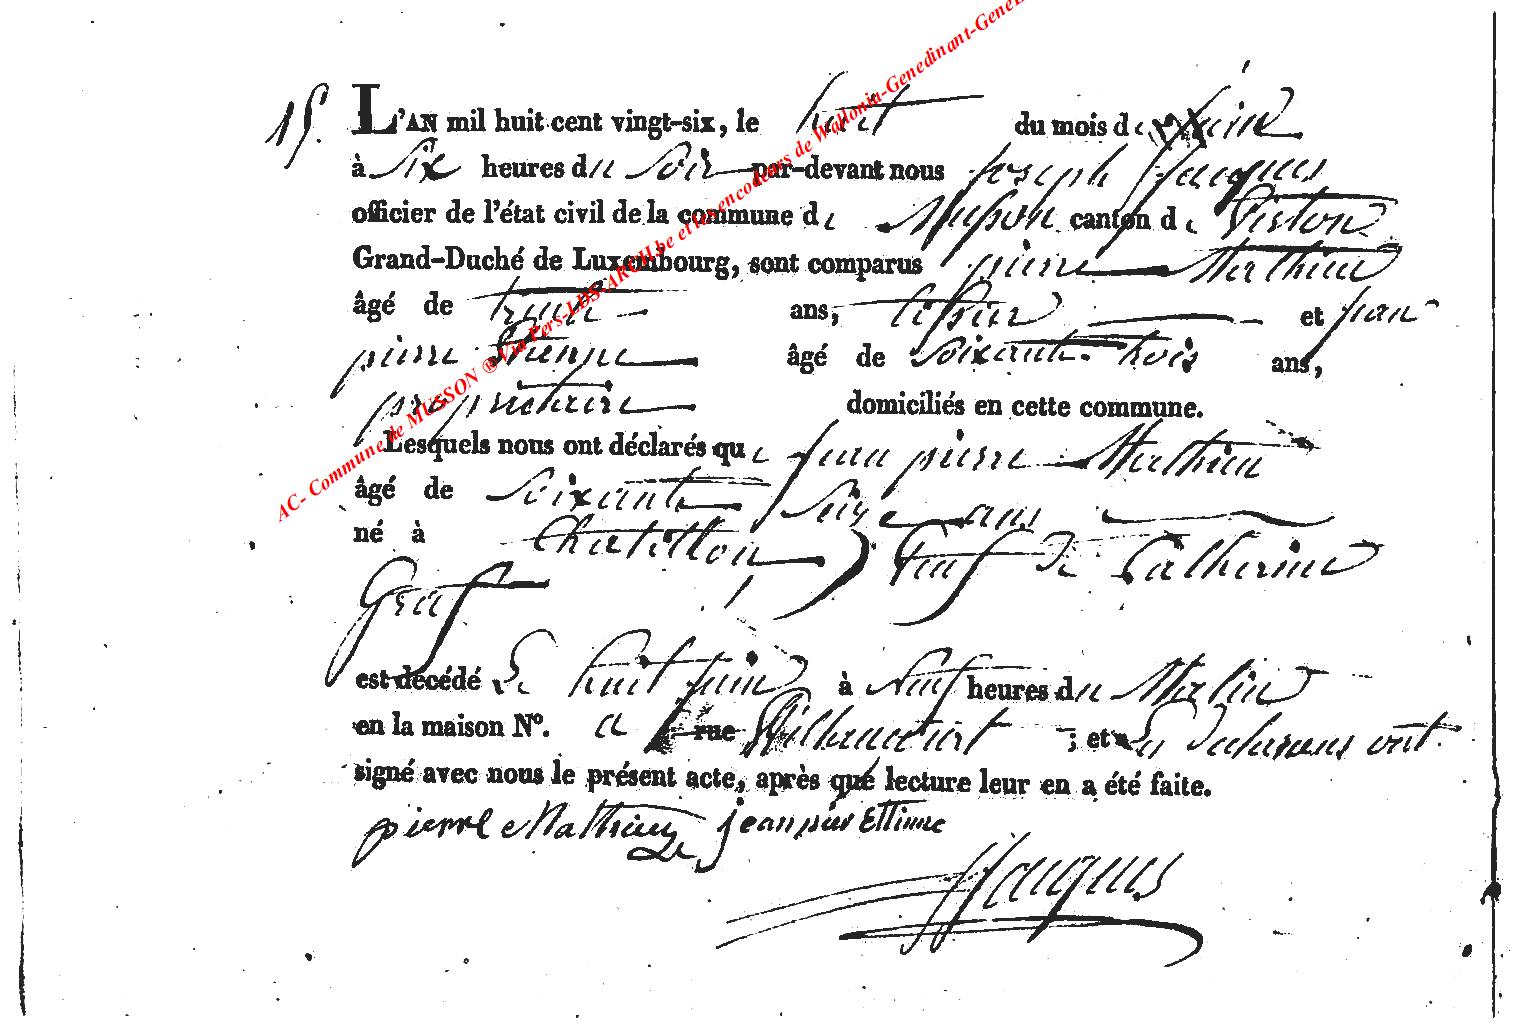 15. L'AN mil huit cent vingt-six, le huit du mois de juin
à Six heures du Soir par-devant nous joseph jacques
officier de l'état civil de la commune de Musson canton de Virton
Grand-Duché de Luxembourg, sont comparus pierre Mathieu
âgé de trente ans, tissier et jean
pierre Etienne âgé de Soixante trois ans,
propriétaire domiciliés en cette commune.
Lesquels nous ont déclarés que jean pierre Mathieu
âgé de Soixante Seize ans
né à Chatillon, veuf de Catherine
Graf
est décédé Le huit juin à Neuf heures du Matin
en la maison N°. a rue Willancourt ; et Les Déclarans ont
signé avec nous le présent acte, après que lecture leur en a été faite.
pierre Mathieu jean pier Ettinne
JJacques
AC- Commune de MUSSON ® Via Pers-LDS-ARCH.be et les encodeurs de Wallonia-Genedinant-GeneL